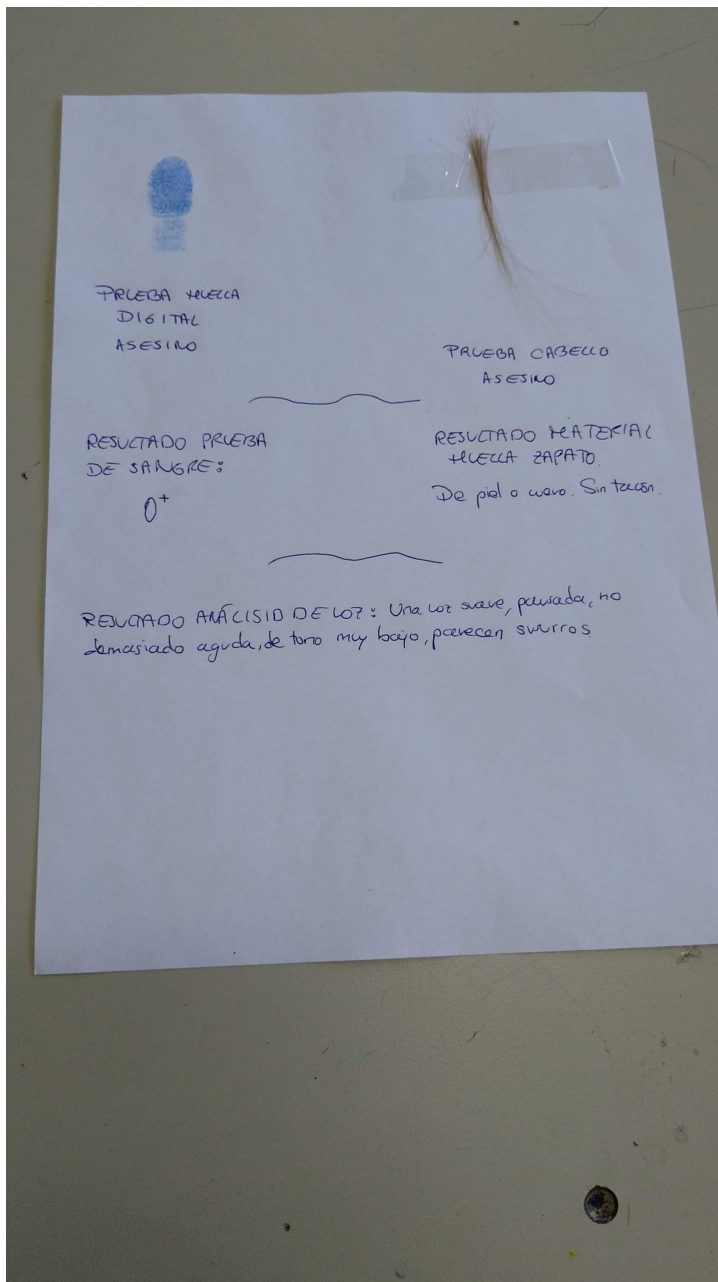 PRUEBA HUELLA
DIGITAL
ASESINO
PRUEBA CABELLO
ASESINO
RESULTADO PRUEBA
DE SANGRE:
O+
RESULTADO MATERIAL
HUELLA ZAPATO.
De piel o cuero. Sin tacón.
RESULTADO ANÁLISID DE VOZ: Una voz suave, pausada, no
demasiado aguda, de tono muy bajo, parecen susurros